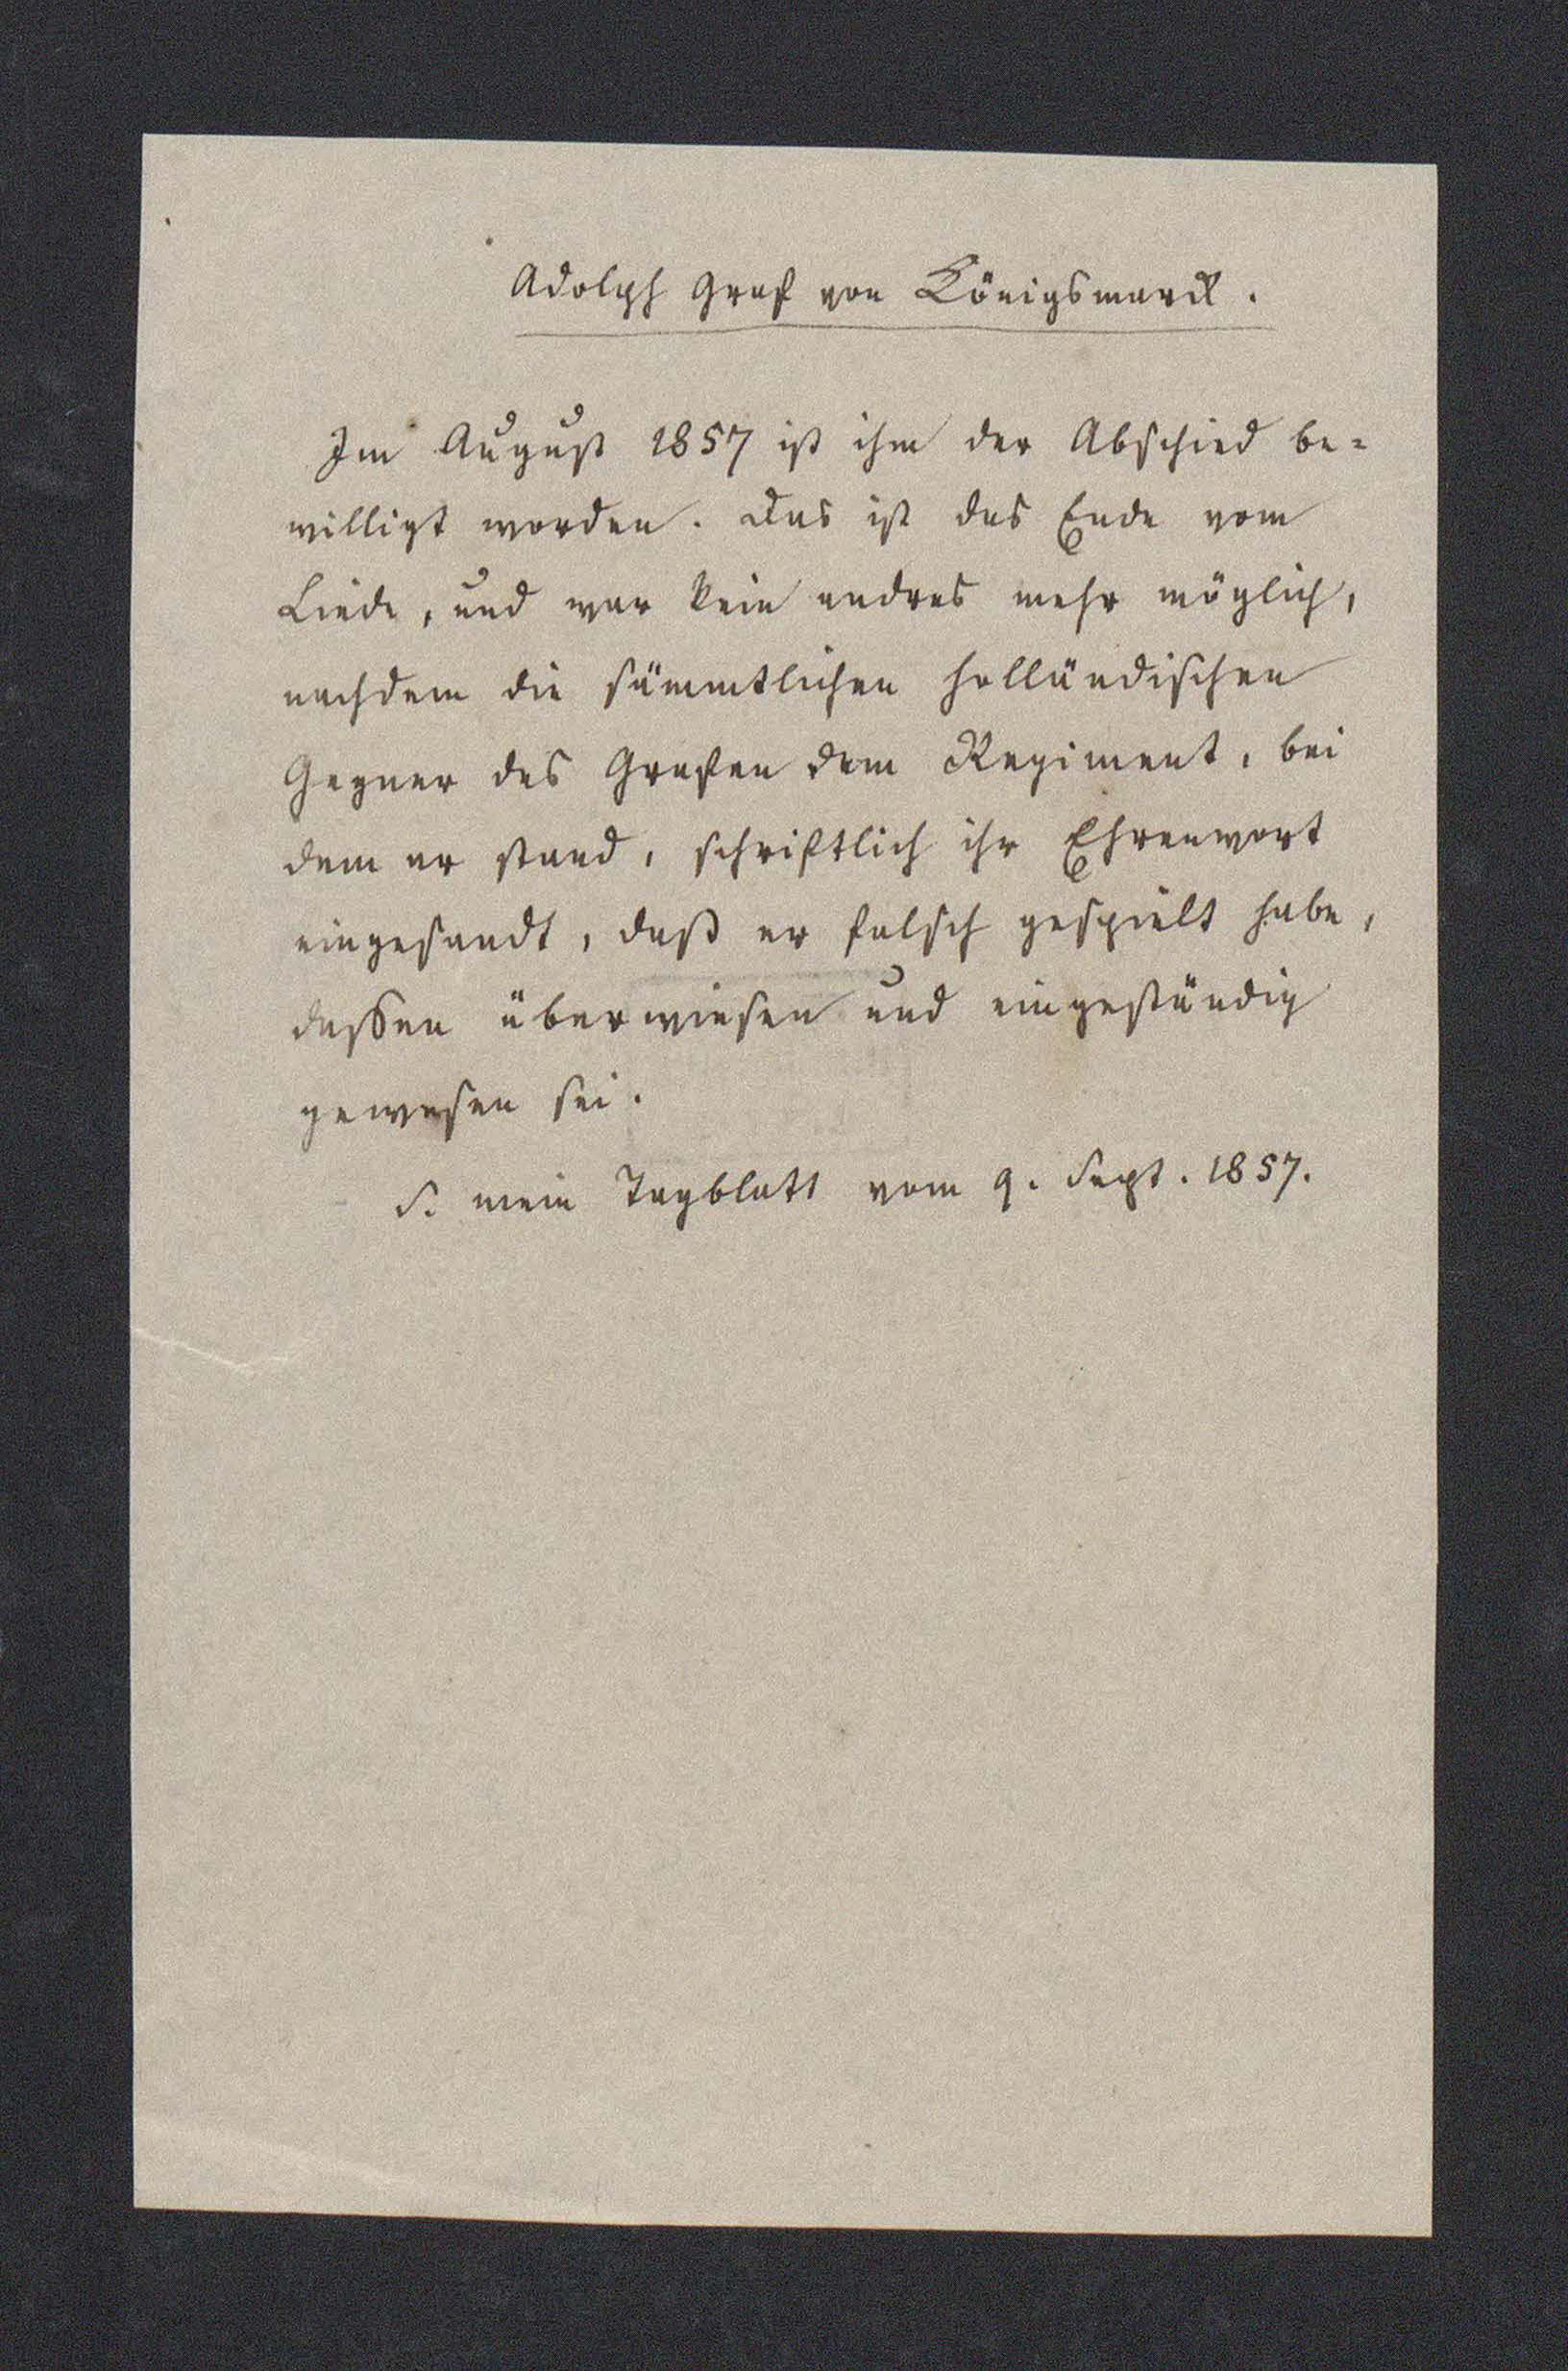 Adolph Graf von Königsmarck.
Im August 1857 ist ihm der Abschied be-
willigt worden. Das ist das Ende vom
Liede, und war kein andres mehr möglich,
nachdem die sämmtlichen holländischen
Gegner des Grafen dem Regiment, bei
dem er stand, schriftlich ihr Ehrenwort
eingesandt, daß er falsch gespielt habe,
dessen überwiesen und eingeständig
gewesen sei.
S. mein Tagblatt vom 9. Sept. 1857.